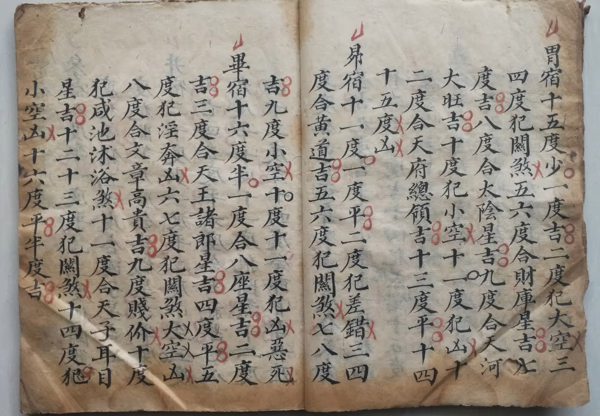 胃宿十五度少一度吉二度犯大空三
四度犯關煞五六度合財庫星吉七
度吉八度合太陰星吉九度合天河
大旺吉十度犯小空十一度犯凶十
二度合天府總領吉十三度平十四
十五度凶
昴宿十一度一度平二度犯差錯三四
度合黃道吉五六度犯關煞七八度
吉九度小空十度十一度犯凶惡死
畢宿十六度半一度合八座星吉二度
吉三度合天王諸郎星吉四度平五
度犯淫奔凶六七度犯關煞大空凶
八度合文章高貴吉九度賤價十度
犯咸池沐浴煞十一度合天子耳目
星吉十二十三度犯關煞十四度犯
小空凶十六度平半度吉